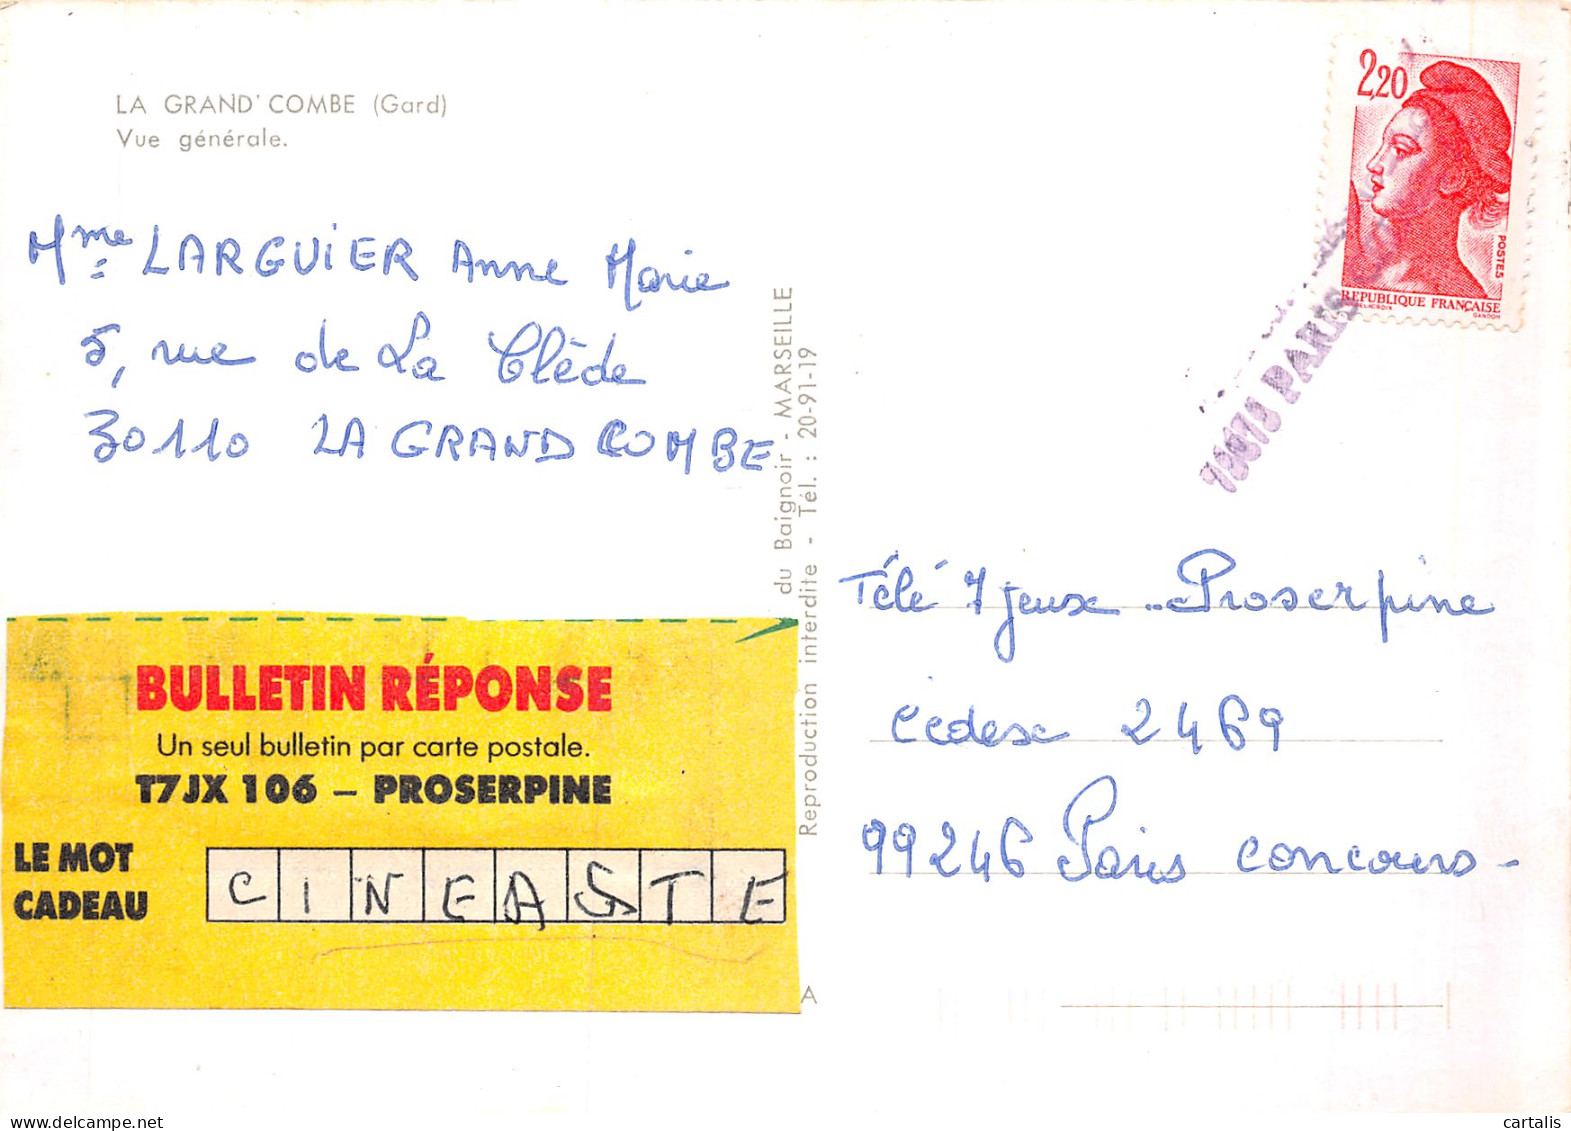 LA GRAND' COMBE (Gard)
Vue générale.
Mme LARGUIER Anne Marie
5, rue de La Clède
30110 LA GRAND COMBE
du Baignoir - MARSEILLE
Reproduction interdite - Tél. : 20-91-19
A
BULLETIN RÉPONSE
Un seul bulletin par carte postale.
T7JX 106 – PROSERPINE
LE MOT
CADEAU
CINEASTE
2,20
POSTES
REPUBLIQUE FRANÇAISE
DELACROIX
GANDON
PARIS
Télé 7 jeux - Proserpine
Cédex 2469
99246 Paris concours -
cartalis